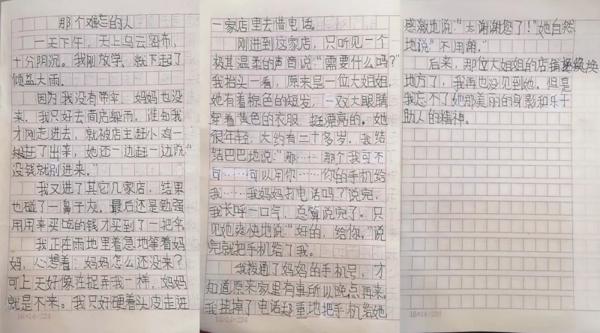 那个难忘的人
一天下午，天上乌云密布，
十分阴沉。我刚放学，就下起了
倾盆大雨。
因为我没有带伞，妈妈也没
来，我只好去商店躲雨。谁知我
才刚走进去，就被店主赶小鸡一
样赶了出来，她还一边赶一边说“
没钱就别进来。”
我又进了其它几家店，结果
也碰了一鼻子灰。最后还是勉强
用用来买吃的钱才买到了一把伞
我正在雨地里着急地等着妈
妈，心想着：妈妈怎么还没来？
可上天好像在捉弄我一样，妈妈
就是不来。我只好硬着头皮走进
一家店里去借电话。
刚进到这家店，只听见一个
极其温柔的声音说：“需要什么吗？”
我抬头一看，原来是一位大姐姐，
她有着棕色的短发，一双大眼睛
穿着黄色的衣服，挺漂亮的。她
很年轻，大约有二十多岁。我结
结巴巴地说：“那……那个我可不
可……可以用你……你的手机给
我……我妈妈打电话吗？说完，
我长呼一口气，总算说完了。只
见她爽快地说：“好的，给你。”说
完就把手机给了我。
我拨通了妈妈的手机号，才
知道原来家里有事所以晚点再来
我挂掉了电话郑重地把手机给她
感激地说：“太谢谢您了！”她自然
地说“不用谢。”
后来，那位大姐姐的店铺换
地方了，我再也没见到她。但是
我忘不了她那美丽的身影和乐于
助人的精神。